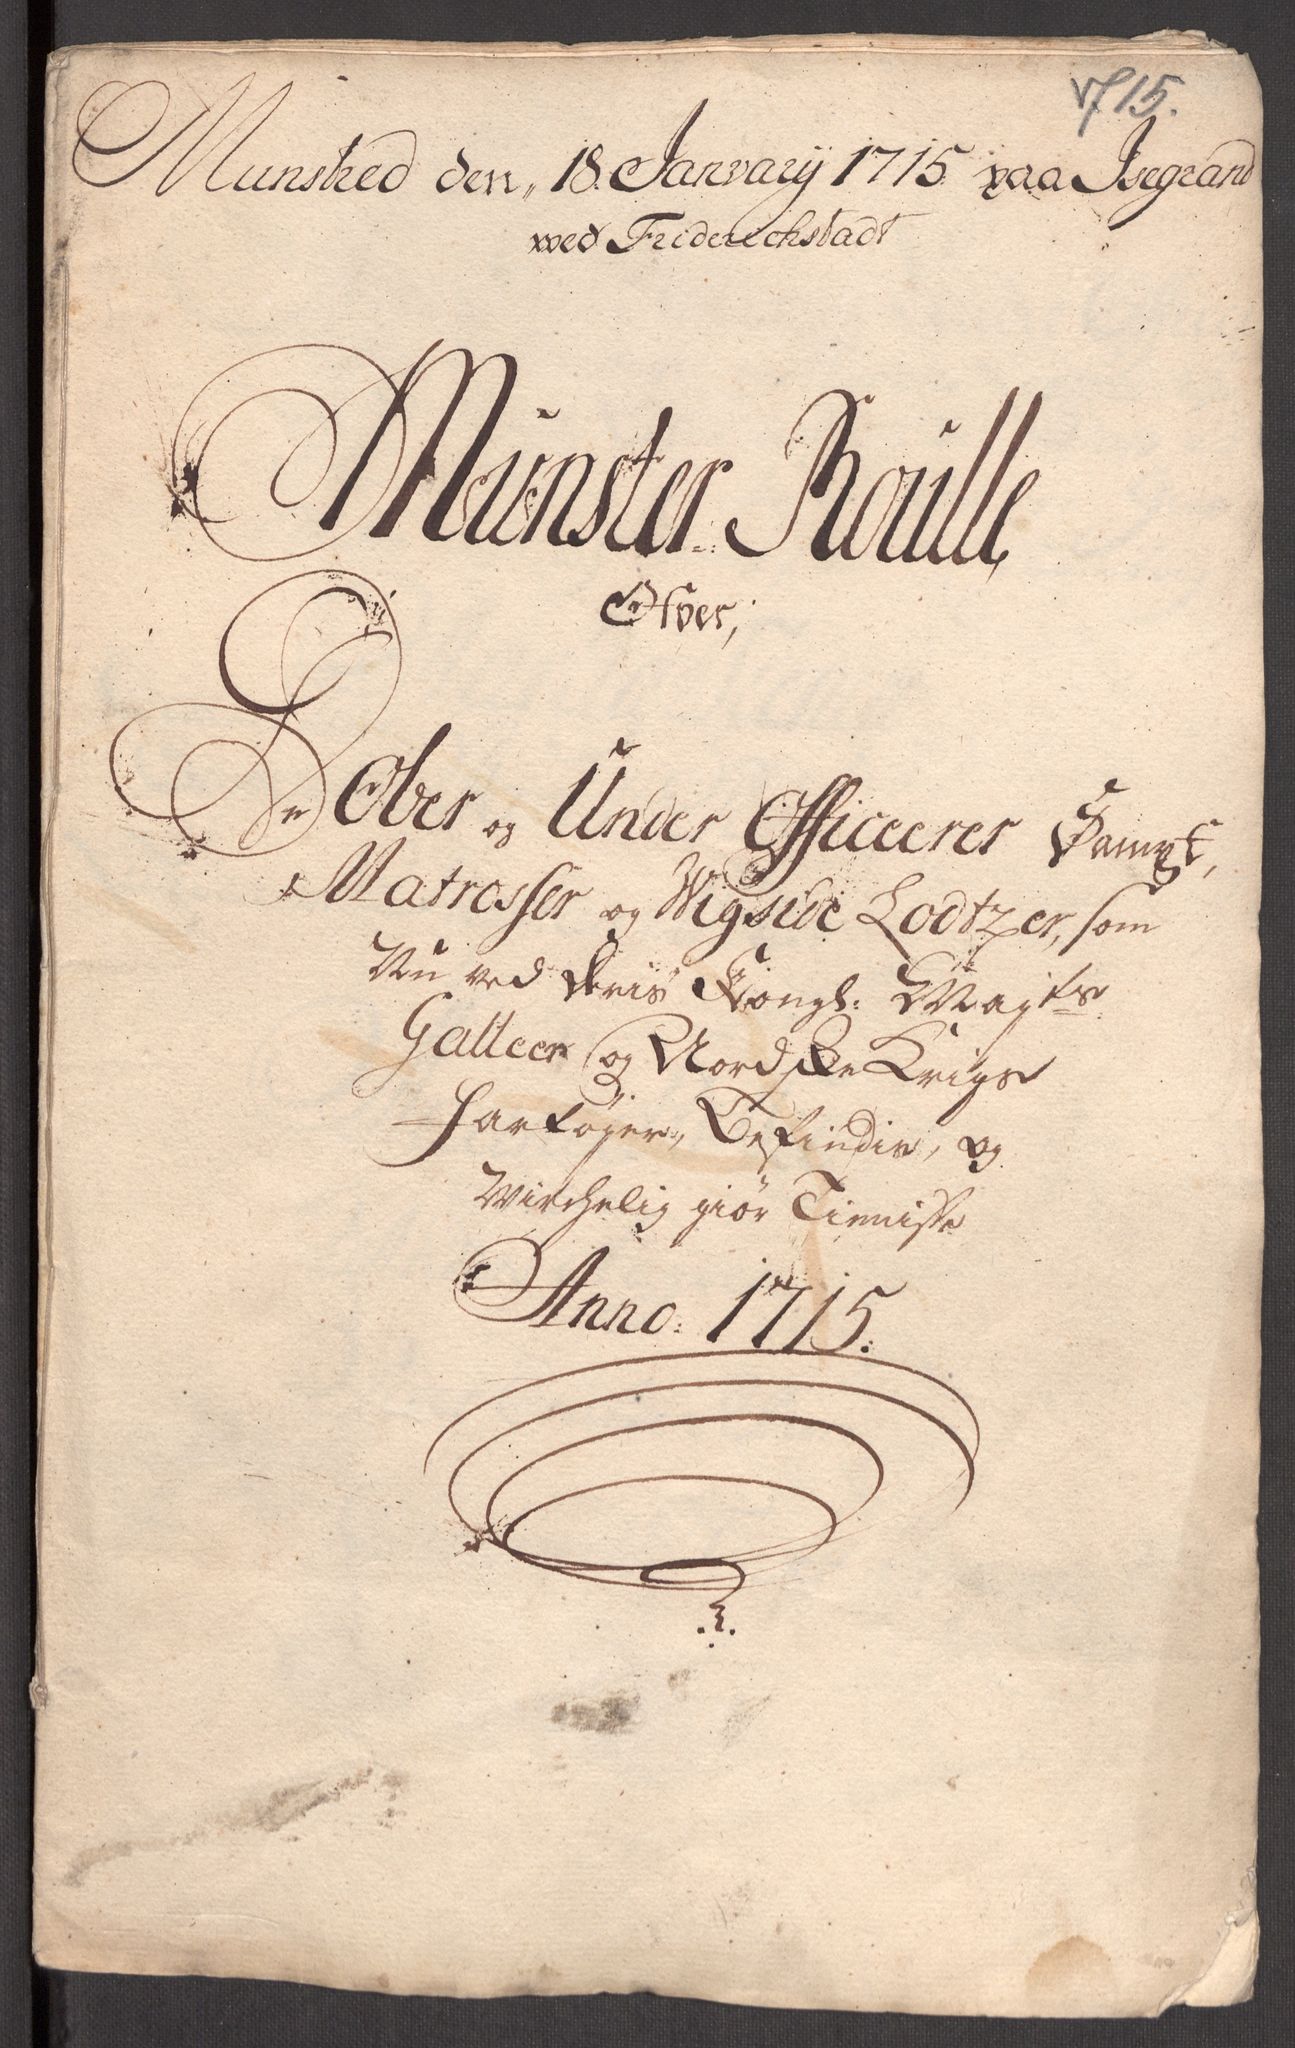 1715.
Munstred den 18. Janvarij 1715 paa Isegrand
wed Friderichstadt
Münster Roulle
Ofver;
De Ober og Under Officeerer Sampt,
Matrosser og Wigside Lodtzer, som
Nu ved Deris Kongl: Mayts
Galleer og Nordske Krigs
Fartøyer, Befindis, og
Wirchelig giør Tienniste
Anno. 1715.